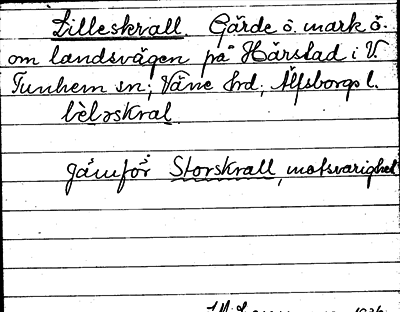 Lilleskrall. Gärde o. mark ö.
om landsvägen på Härstad i V.
Tunhem sn; Väne hrd; Älfsborgs l.
lèlǝskral
Jämför Storskrall, motsvarighet